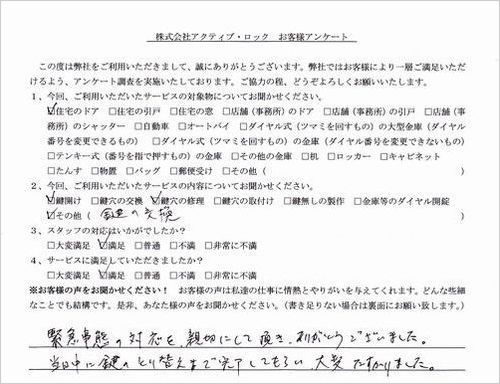 株式会社アクティブ・ロック　お客様アンケート
この度は弊社をご利用いただきまして、誠にありがとうございます。弊社ではお客様により一層ご満足いただ
けるよう、アンケート調査を実施いたしております。ご協力の程、どうぞよろしくお願いいたします。
1、今回、ご利用いただいたサービスの対象物についてお聞かせください。
☑住宅のドア　□住宅の引戸　□住宅の窓　□店舗（事務所）のドア　□店舗（事務所）の引戸　□店舗（事
務所）のシャッター　□自動車　□オートバイ　□ダイヤル式（ツマミを回すもの）の大型金庫（ダイヤル
番号を変更できるもの）　□ダイヤル式（ツマミを回すもの）の金庫（ダイヤル番号を変更できないもの）
□テンキー式（番号を指で押すもの）の金庫　□その他の金庫　□机　□ロッカー　□キャビネット
□たんす　□物置　□バッグ　□郵便受け　□その他（　　　　　　　）
2、今回、ご利用いただいたサービスの内容についてお聞かせください。
☑鍵開け　□鍵穴の交換　☑鍵穴の修理　□鍵穴の取付け　□鍵無しの製作　□金庫等のダイヤル開錠
☑その他（　鍵の交換　　　　　　　）
3、スタッフの対応はいかがでしたか？
□大変満足　☑満足　□普通　□不満　□非常に不満
4、サービスに満足していただきましたか？
□大変満足　☑満足　□普通　□不満　□非常に不満
※お客様の声をお聞かせください！　お客様の声は私達の仕事に情熱とやりがいを与えてくれます。どんな些細
なことでも結構です。是非、あなた様の声をお聞かせください。（書き足りない場合は裏面にお願い致します。）
緊急事態の対応を、親切にして頂き、ありがとうございました。
当日中に鍵のとり替えまで完了してもらい、大変たすかりました。